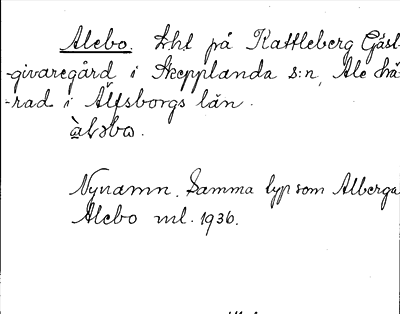 Alebo. Lht på Kattleberg Gäst-
-givaregård i Skepplanda s:n, Ale hä-
-rad i Älfsborgs län.
Nynamn. Samma typ som Alberga
Alebo ml. 1936.